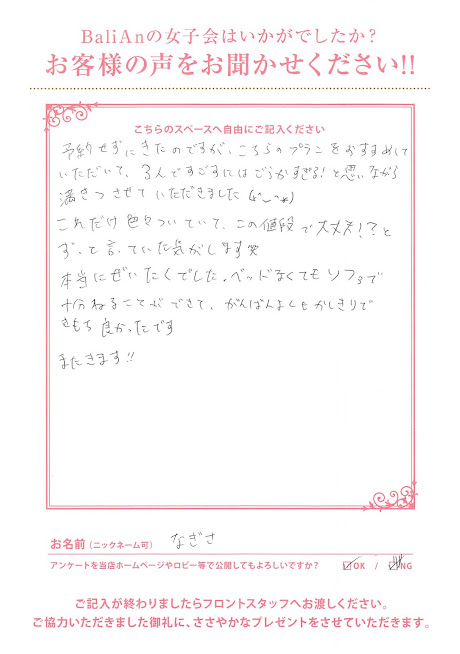 BaliAnの女子会はいかがでしたか?
お客様の声をお聞かせください!!
こちらのスペースへ自由にご記入ください
予約せずにきたのですが、こちらのプランをおすすめして
いただいて、3人ですごすにはごうかすぎる!と思いながら
満きつさせていただきました(*^_^*)
これだけ色々ついていて、この値段で大丈夫!?と
ずっと言っていた気がします笑
本当にぜいたくでした。ベッドなくてもソファで
十分ねることができて、がんばんよくもかしきりで
きもち良かったです
またきます!!
お名前(ニックネーム可) なぎさ
アンケートを当店ホームページやロビー等で公開してもよろしいですか? OK / NG
ご記入が終わりましたらフロントスタッフへお渡しください。
ご協力いただきました御礼に、ささやかなプレゼントをさせていただきます。